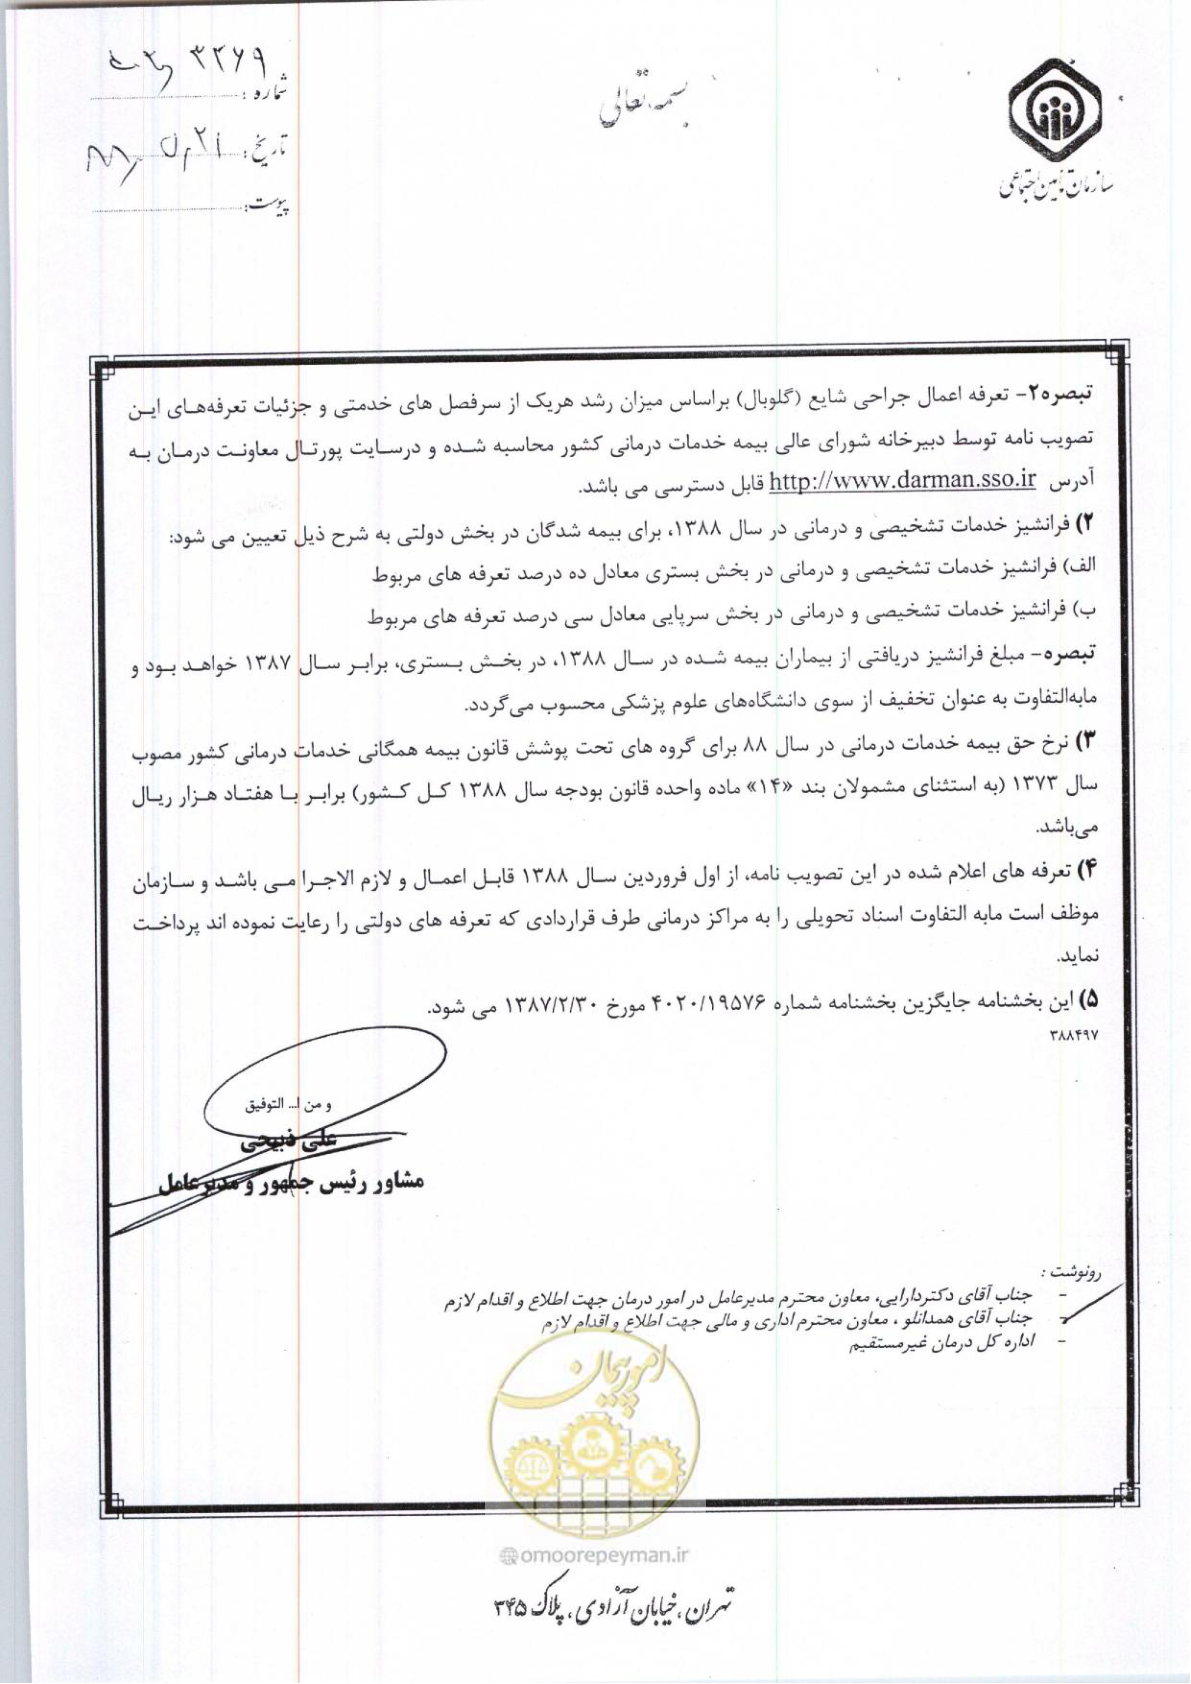 بسمه تعالی
سازمان تأمین اجتماعی
شماره :
تاریخ : ۸۸/۵/۲۱
پیوست :
تبصره۲- تعرفه اعمال جراحی شایع (گلوبال) براساس میزان رشد هریک از سرفصل های خدمتی و جزئیات تعرفه‌های این
تصویب نامه توسط دبیرخانه شورای عالی بیمه خدمات درمانی کشور محاسبه شده و درسایت پورتال معاونت درمان به
آدرس http://www.darman.sso.ir قابل دسترسی می باشد.
۲) فرانشیز خدمات تشخیصی و درمانی در سال ۱۳۸۸، برای بیمه شدگان در بخش دولتی به شرح ذیل تعیین می شود:
الف) فرانشیز خدمات تشخیصی و درمانی در بخش بستری معادل ده درصد تعرفه های مربوط
ب) فرانشیز خدمات تشخیصی و درمانی در بخش سرپایی معادل سی درصد تعرفه های مربوط
تبصره- مبلغ فرانشیز دریافتی از بیماران بیمه شده در سال ۱۳۸۸، در بخش بستری، برابر سال ۱۳۸۷ خواهد بود و
مابه‌التفاوت به عنوان تخفیف از سوی دانشگاه‌های علوم پزشکی محسوب می‌گردد.
۳) نرخ حق بیمه خدمات درمانی در سال ۸۸ برای گروه های تحت پوشش قانون بیمه همگانی خدمات درمانی کشور مصوب
سال ۱۳۷۳ (به استثنای مشمولان بند «۱۴» ماده واحده قانون بودجه سال ۱۳۸۸ کل کشور) برابر با هفتاد هزار ریال
می‌باشد.
۴) تعرفه های اعلام شده در این تصویب نامه، از اول فروردین سال ۱۳۸۸ قابل اعمال و لازم الاجرا می باشد و سازمان
موظف است مابه التفاوت اسناد تحویلی را به مراکز درمانی طرف قراردادی که تعرفه های دولتی را رعایت نموده اند پرداخت
نماید.
۵) این بخشنامه جایگزین بخشنامه شماره ۴۰۲۰/۱۹۵۷۶ مورخ ۱۳۸۷/۲/۳۰ می شود.
۳۸۸۴۹۷
و من ا... التوفیق
علی ذبیحی
مشاور رئیس جمهور و مدیرعامل
رونوشت :
- جناب آقای دکتردارایی، معاون محترم مدیرعامل در امور درمان جهت اطلاع و اقدام لازم
- جناب آقای همدانلو ، معاون محترم اداری و مالی جهت اطلاع و اقدام لازم
- اداره کل درمان غیرمستقیم
امور پیمان
omoorepeyman.ir
تهران ، خیابان آزادی ، پلاک ۳۴۵